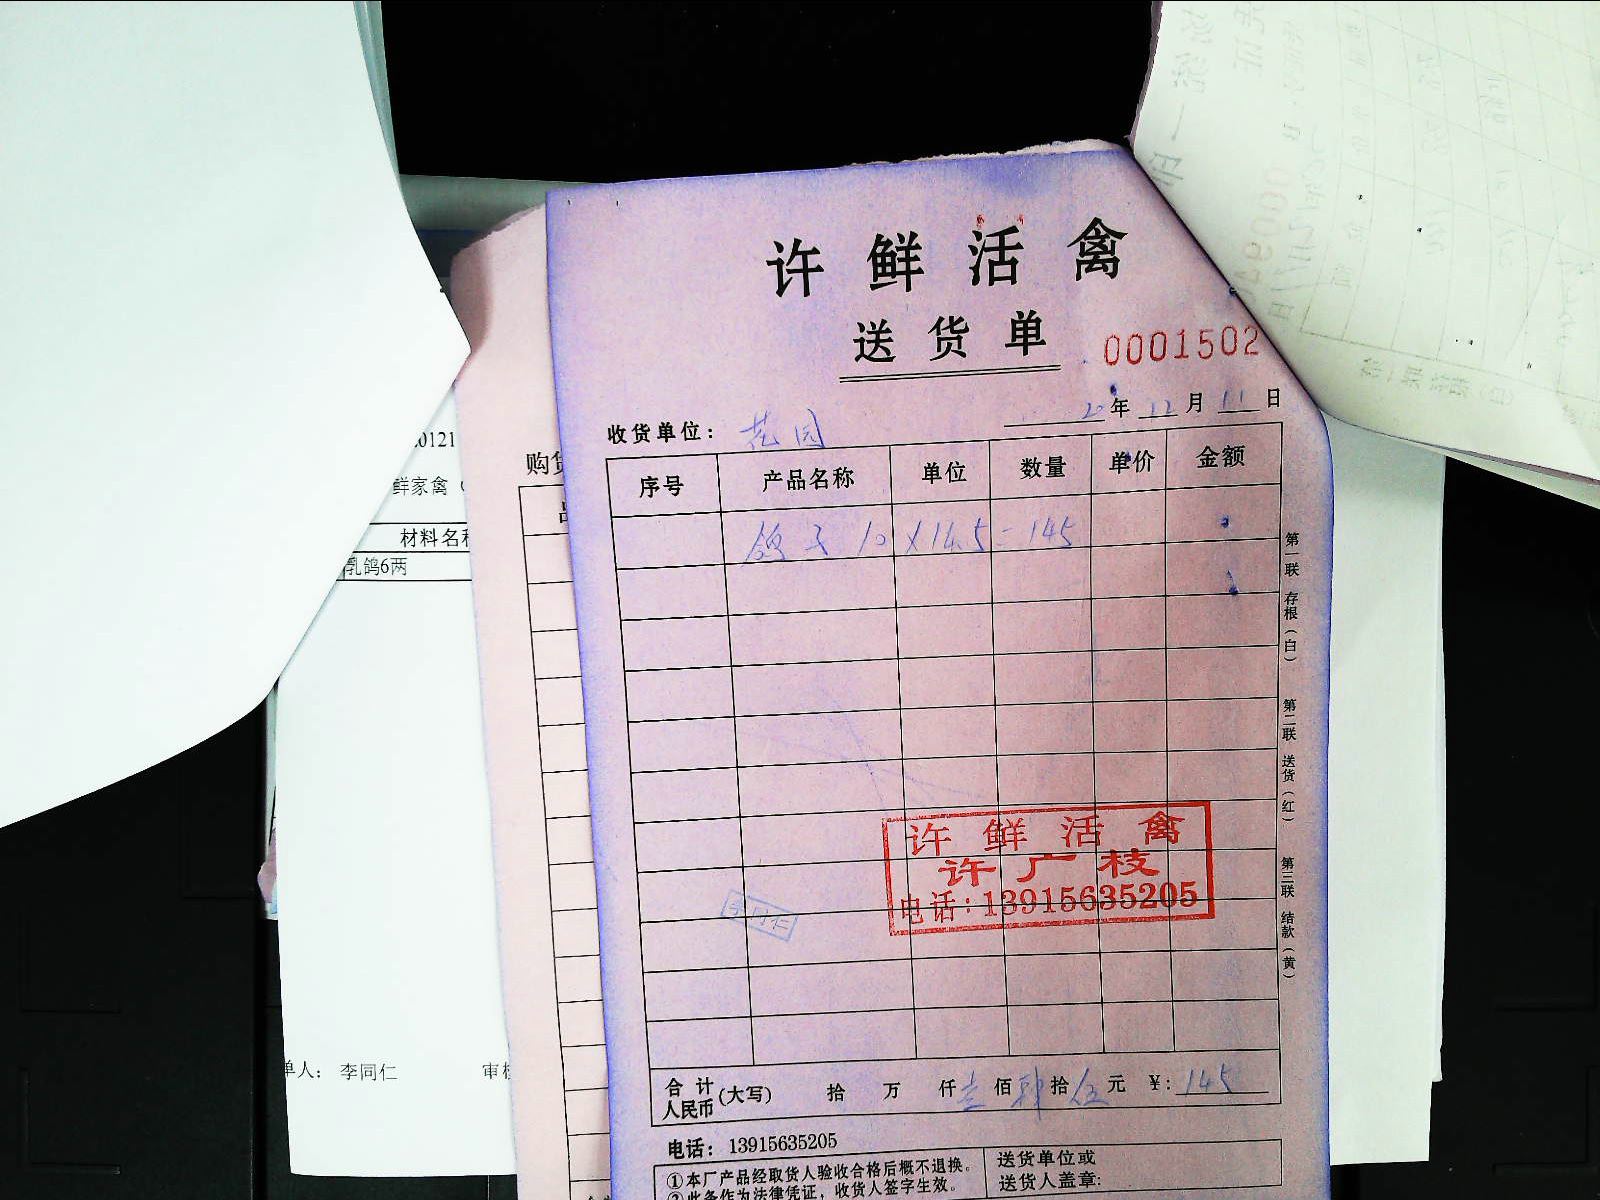 许鲜活禽
送货单
0001502
20年12月11日
收货单位：花园
序号 产品名称 单位 数量 单价 金额
鸽子 10×14.5=145
第一联 存根（白）
第二联 送货（红）
第三联 结款（黄）
许鲜活禽
许广枝
电话：13915635205
合计人民币(大写) 拾 万 仟壹佰肆拾伍元 ¥：145
电话：13915635205
①本厂产品经取货人验收合格后概不退换。
②此条作为法律凭证，收货人签字生效。
送货单位或
送货人盖章：
购货
0121
鲜家禽（
材料名称
乳鸽6两
单人：李同仁
审核